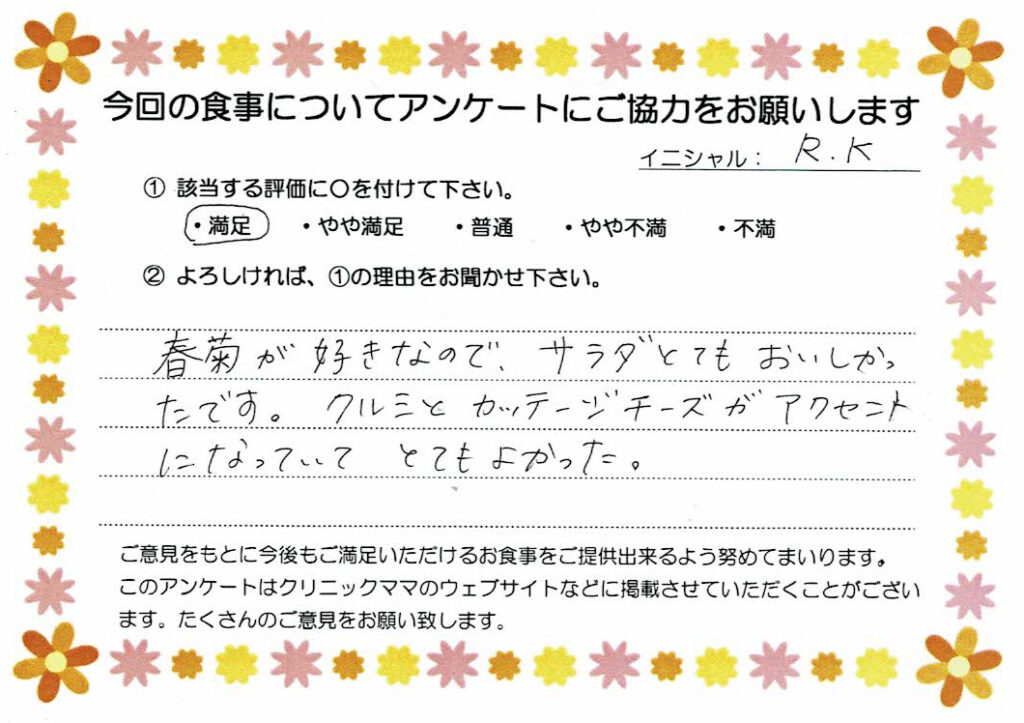 今回の食事についてアンケートにご協力をお願いします
イニシャル： R.K
① 該当する評価に〇を付けて下さい。
・満足 ・やや満足 ・普通 ・やや不満 ・不満
② よろしければ、①の理由をお聞かせ下さい。
春菊が好きなので、サラダとてもおいしかっ
たです。クルミとカッテージチーズがアクセント
になっていて とてもよかった。
ご意見をもとに今後もご満足いただけるお食事をご提供出来るよう努めてまいります。
このアンケートはクリニックママのウェブサイトなどに掲載させていただくことがござい
ます。たくさんのご意見をお願い致します。